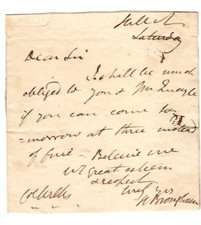 Saturday
Dear Sir
I shall be much
obliged to you &
if you can come to
-morrow at three instead
of five - Believe me
wt great esteem
& respect
H Brougham